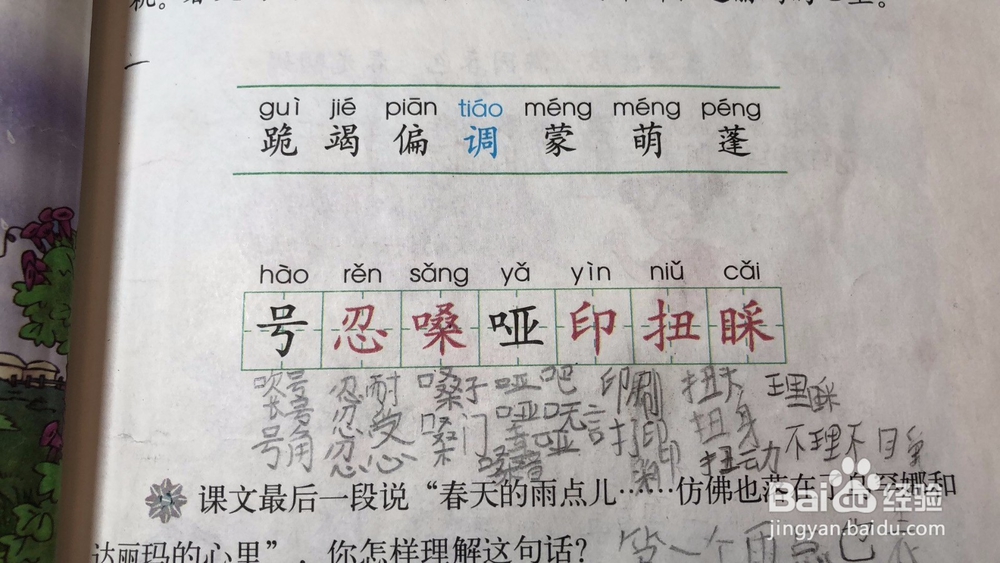 guì jié piān tiáo méng méng péng
跪 竭 偏 调 蒙 萌 蓬
hào rěn sǎng yǎ yìn niǔ cǎi
号 忍 嗓 哑 印 扭 睬
吹号 忍耐 嗓子 哑吧 印刷 扭 理睬
长号 忍受 嗓门 哑 无言 打印 扭身 不理不
号角 忍心 扭动
课文最后一段说“春天的雨点儿……仿佛也落在了 娜和
达丽玛的心里”，你怎样理解这句话？
Baidu 经验
jingyan.baidu.com